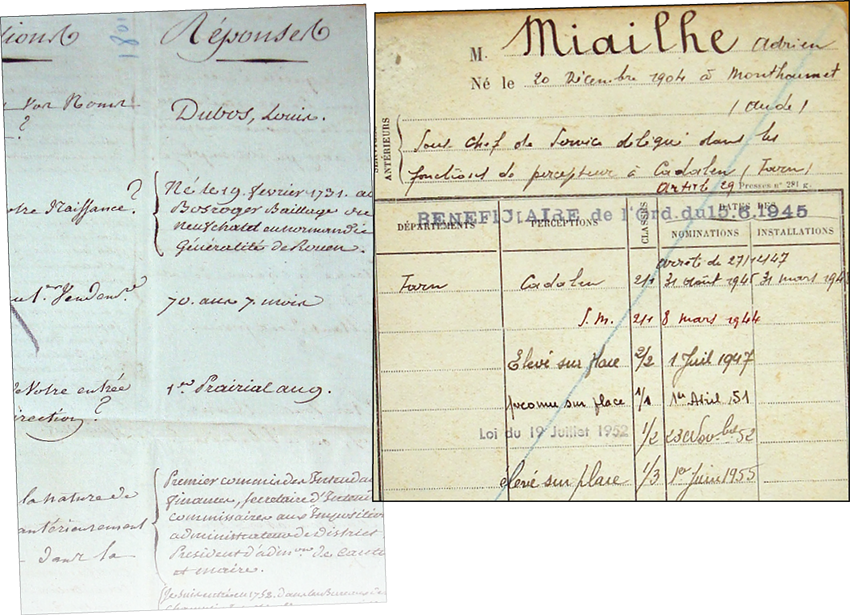 Réponses
1801
Dubos, Louis.
otre Naissance?
Né le 19. février 1731. au
Bosroger Bailliage de
neufchatel en normandie
Généralité de Rouen.
70. ans 7. mois
de Votre entrée
irection?
1er Prairial an 9.
la nature de
antérieurement
dans la
Premier commis des Intendan
finances, secrétaire d'Inten
commissaires aux Impositio
administrateur de District
Président d'admon de cant
et maire.
M. Miailhe Adrien
Né le 20 Décembre 1904 à Monthoumet
(Aude)
ANTÉRIEURS
Sous chef de Service délégué dans les
fonctions de percepteur à Cadalen (Tarn)
article 29 Presses n° 291 g.
BENEFICIAIRE de l'Ord. du 15.6.1945
DÉPARTEMENTS
PERCEPTIONS
CLASSES
DATES DES
NOMINATIONS
INSTALLATIONS
arrêté de 27/1/47
Tarn Cadalen 2/1 31 août 194 31 mars 194
S. M. 2/1 8 mars 1944
Elevé sur place 2/2 1 Juil 1947
promu sur place 1/1 1er Avril 51
Loi du 19 Juillet 1952 1/2 23 Novbre 52
élevé sur place 1/3 1er Juin 1955